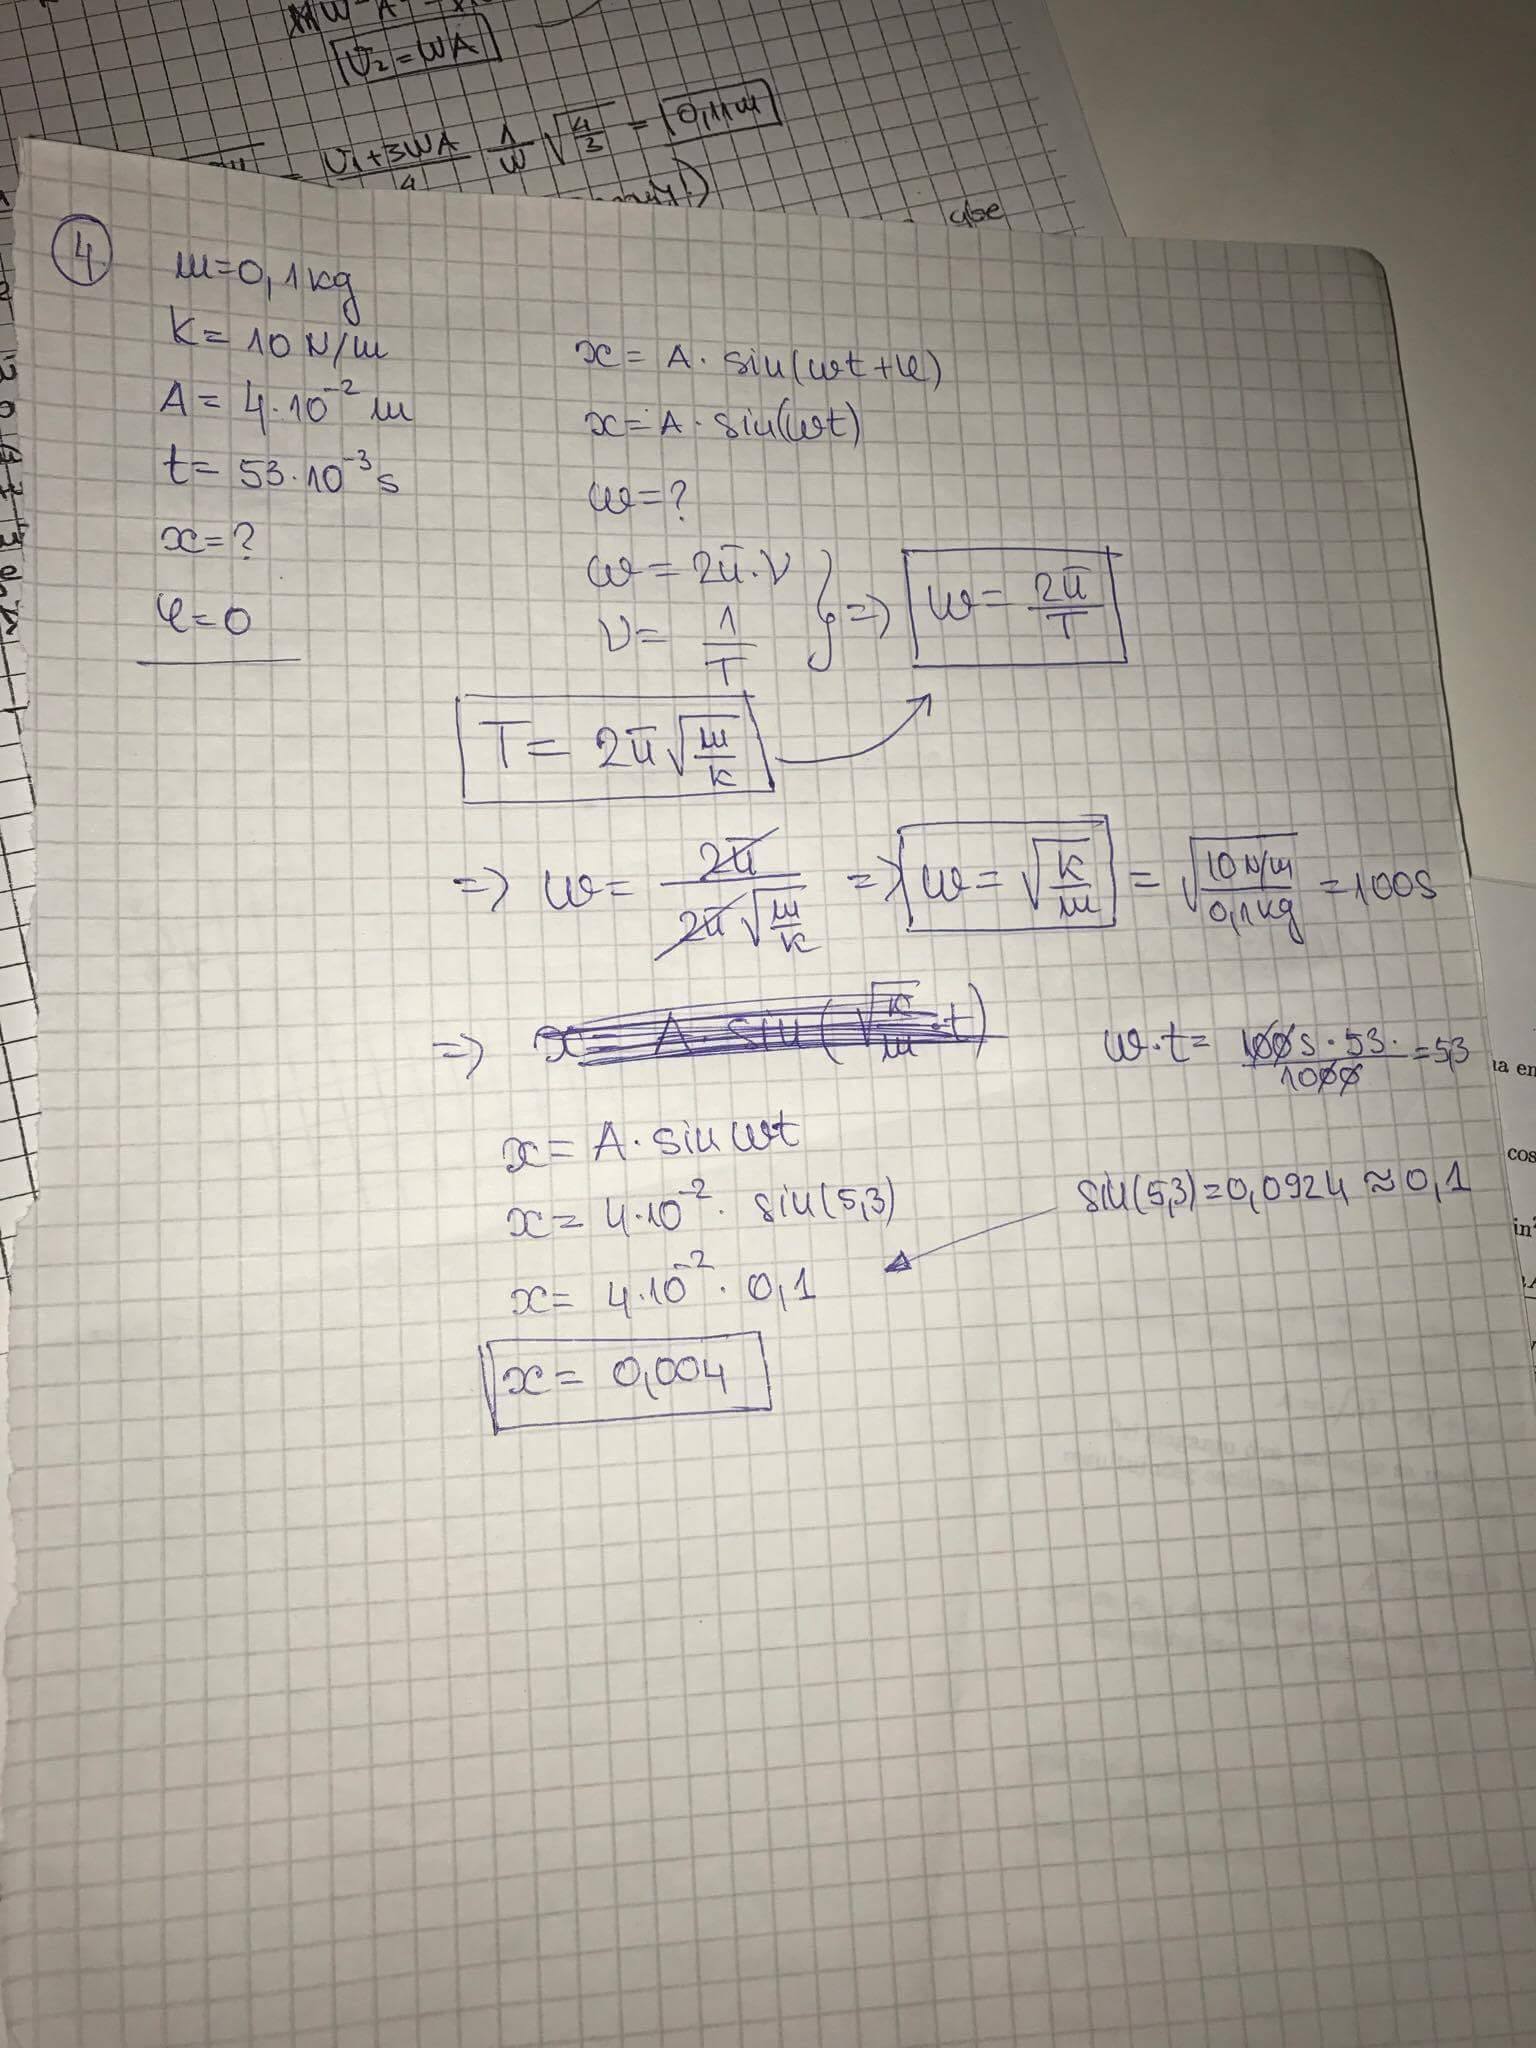 V₂ = WA
= V₁+3WA/4 1/W √(4/3) = 0,11m
4
m=0,1kg
K= 10 N/m
A= 4·10⁻² m
t= 53·10⁻³ s
x=?
φ=0
x= A· sin(ωt+φ)
x= A· sin(ωt)
ω=?
ω= 2π·ν
ν= 1/T
=> ω= 2π/T
T= 2π√(m/k)
=> ω= 2π/(2π√(m/k)) => ω= √(k/m) = √(10 N/m / 0,1kg) =100s
=> x= A· sin(√(k/m)·t)
ω·t= 100s·53·/1000 =5,3
x= A· sin ωt
x= 4·10⁻²· sin(5,3)
sin(5,3)=0,0924 ≈ 0,1
x= 4·10⁻²· 0,1
x= 0,004
cos